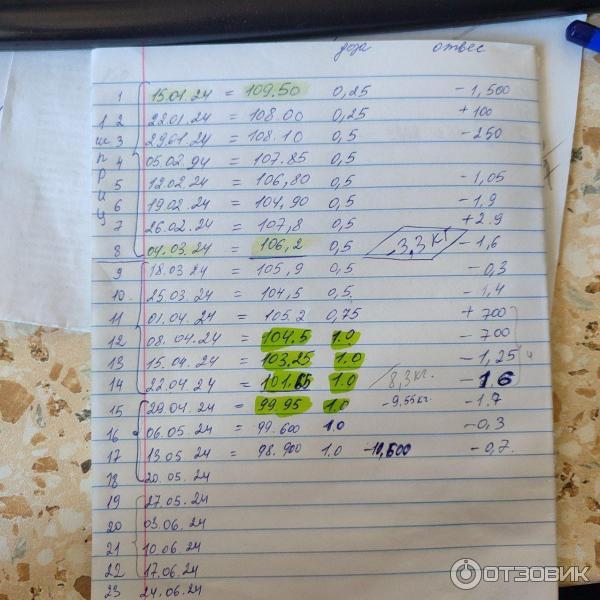 доза отвес
1 15.01.24 = 109.50 0,25 - 1,500
1 2 22.01.24 = 108.00 0,25 + 100
ш 3 29.01.24 = 108.10 0,5 - 250
п 4 05.02.24 = 107.85 0,5
р 5 12.02.24 = 106,80 0,5 - 1,05
и 6 19.02.24 = 104,90 0,5 - 1,9
ц 7 26.02.24 = 107,8 0,5 + 2.9
8 04.03.24 = 106,2 0,5 3,3 кг - 1,6
9 18.03.24 = 105,9 0,5 - 0,3
10. 25.03.24 = 104,5 0,5. - 1,4
11 01.04.24 = 105.2 0,75 + 700
12 08.04.24 = 104.5 1.0 - 700
13 15.04.24 = 103,25 1.0 - 1,25
14 22.04.24 = 101.65 1.0 8,3 кг. - 1.6
15 29.04.24 = 99.95 1.0 -9.55 кг. - 1.7
16 06.05.24 = 99.600 1.0 - 0,3
17 13.05.24 = 98.900 1.0 -10,600 - 0,7.
18 20.05.24
19 27.05.24
20 03.06.24
21 10.06.24
22 17.06.24
23 24.06.24
ОТЗОВИК